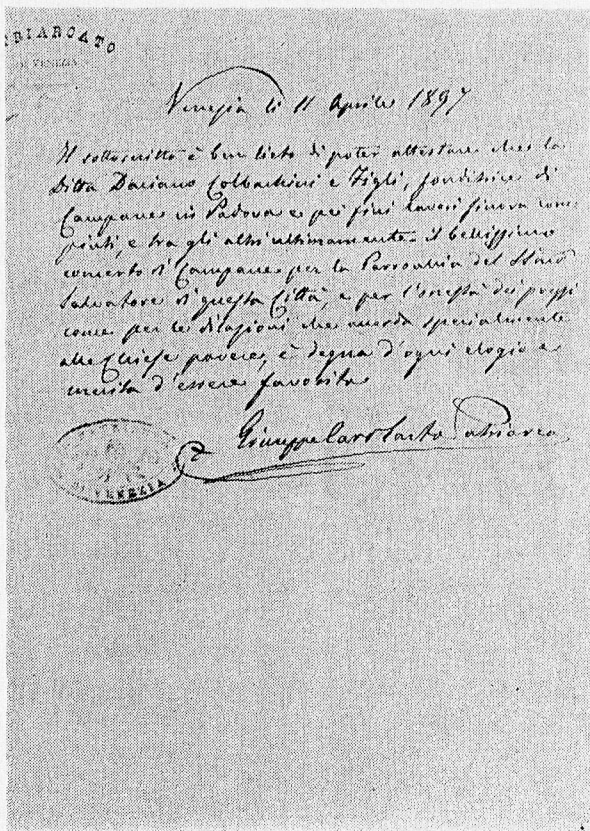 RIARCATO
DI VENEZIA
Venezia li 11 Aprile 1897
Il sottoscritto è ben lieto di poter attestare che la
Ditta Daciano Colbachini e Figli, fonditrice di
Campane in Padova e pei fini lavori finora com-
piuti, e tra gli altri ultimamente il bellissimo
concerto di Campane per la Parrocchia del SSmo
Salvatore di questa Città, e per l'onestà dei prezzi
come per le dilazioni che accorda specialmente
alle Chiese povere, è degna d'ogni elogio e
merita d'essere favorita
Giuseppe Card Sarto Patriarca
DI VENEZIA